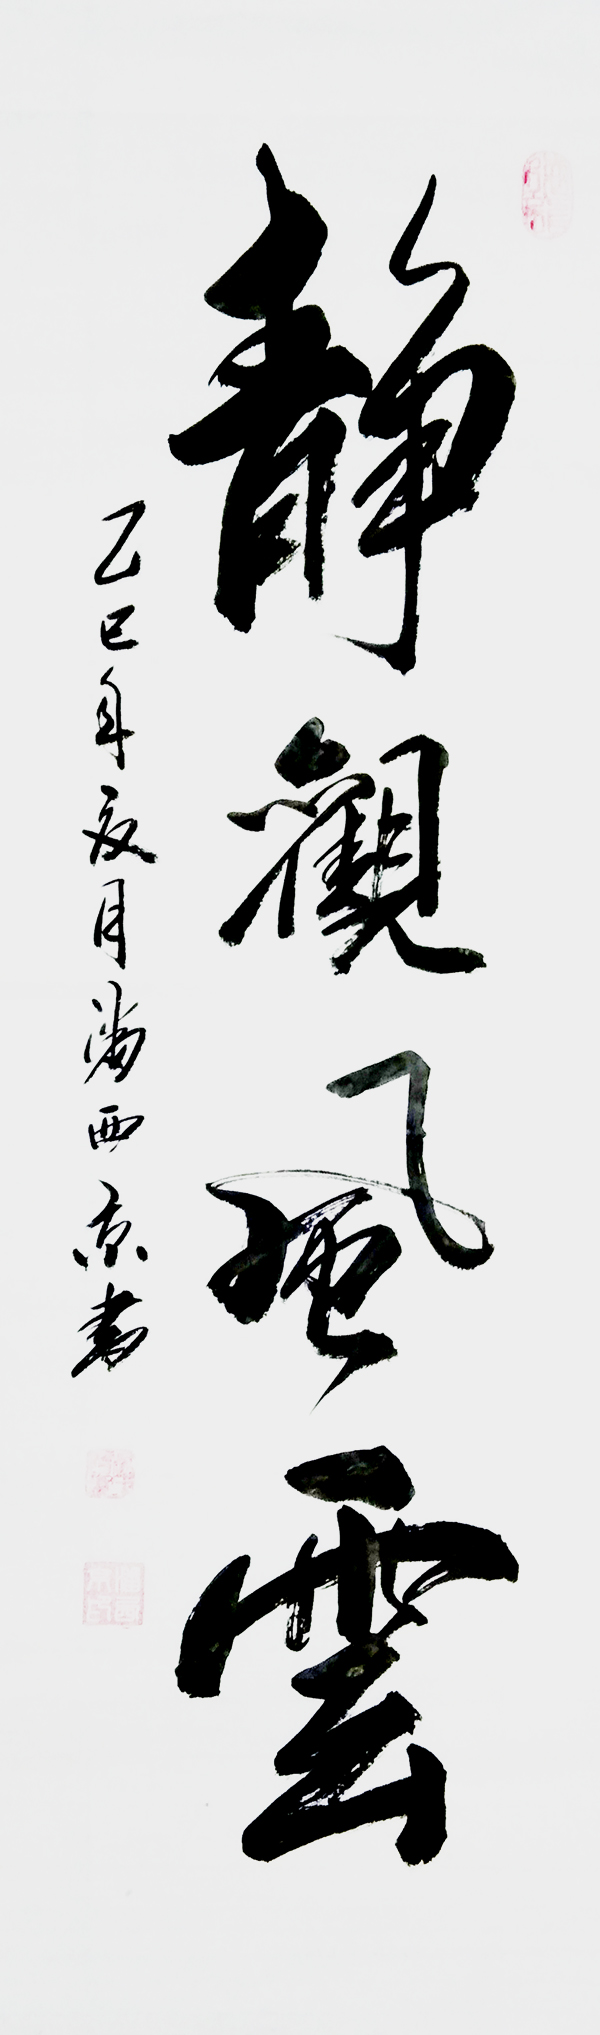 靜觀風雲
乙巳年夏月潘西京書